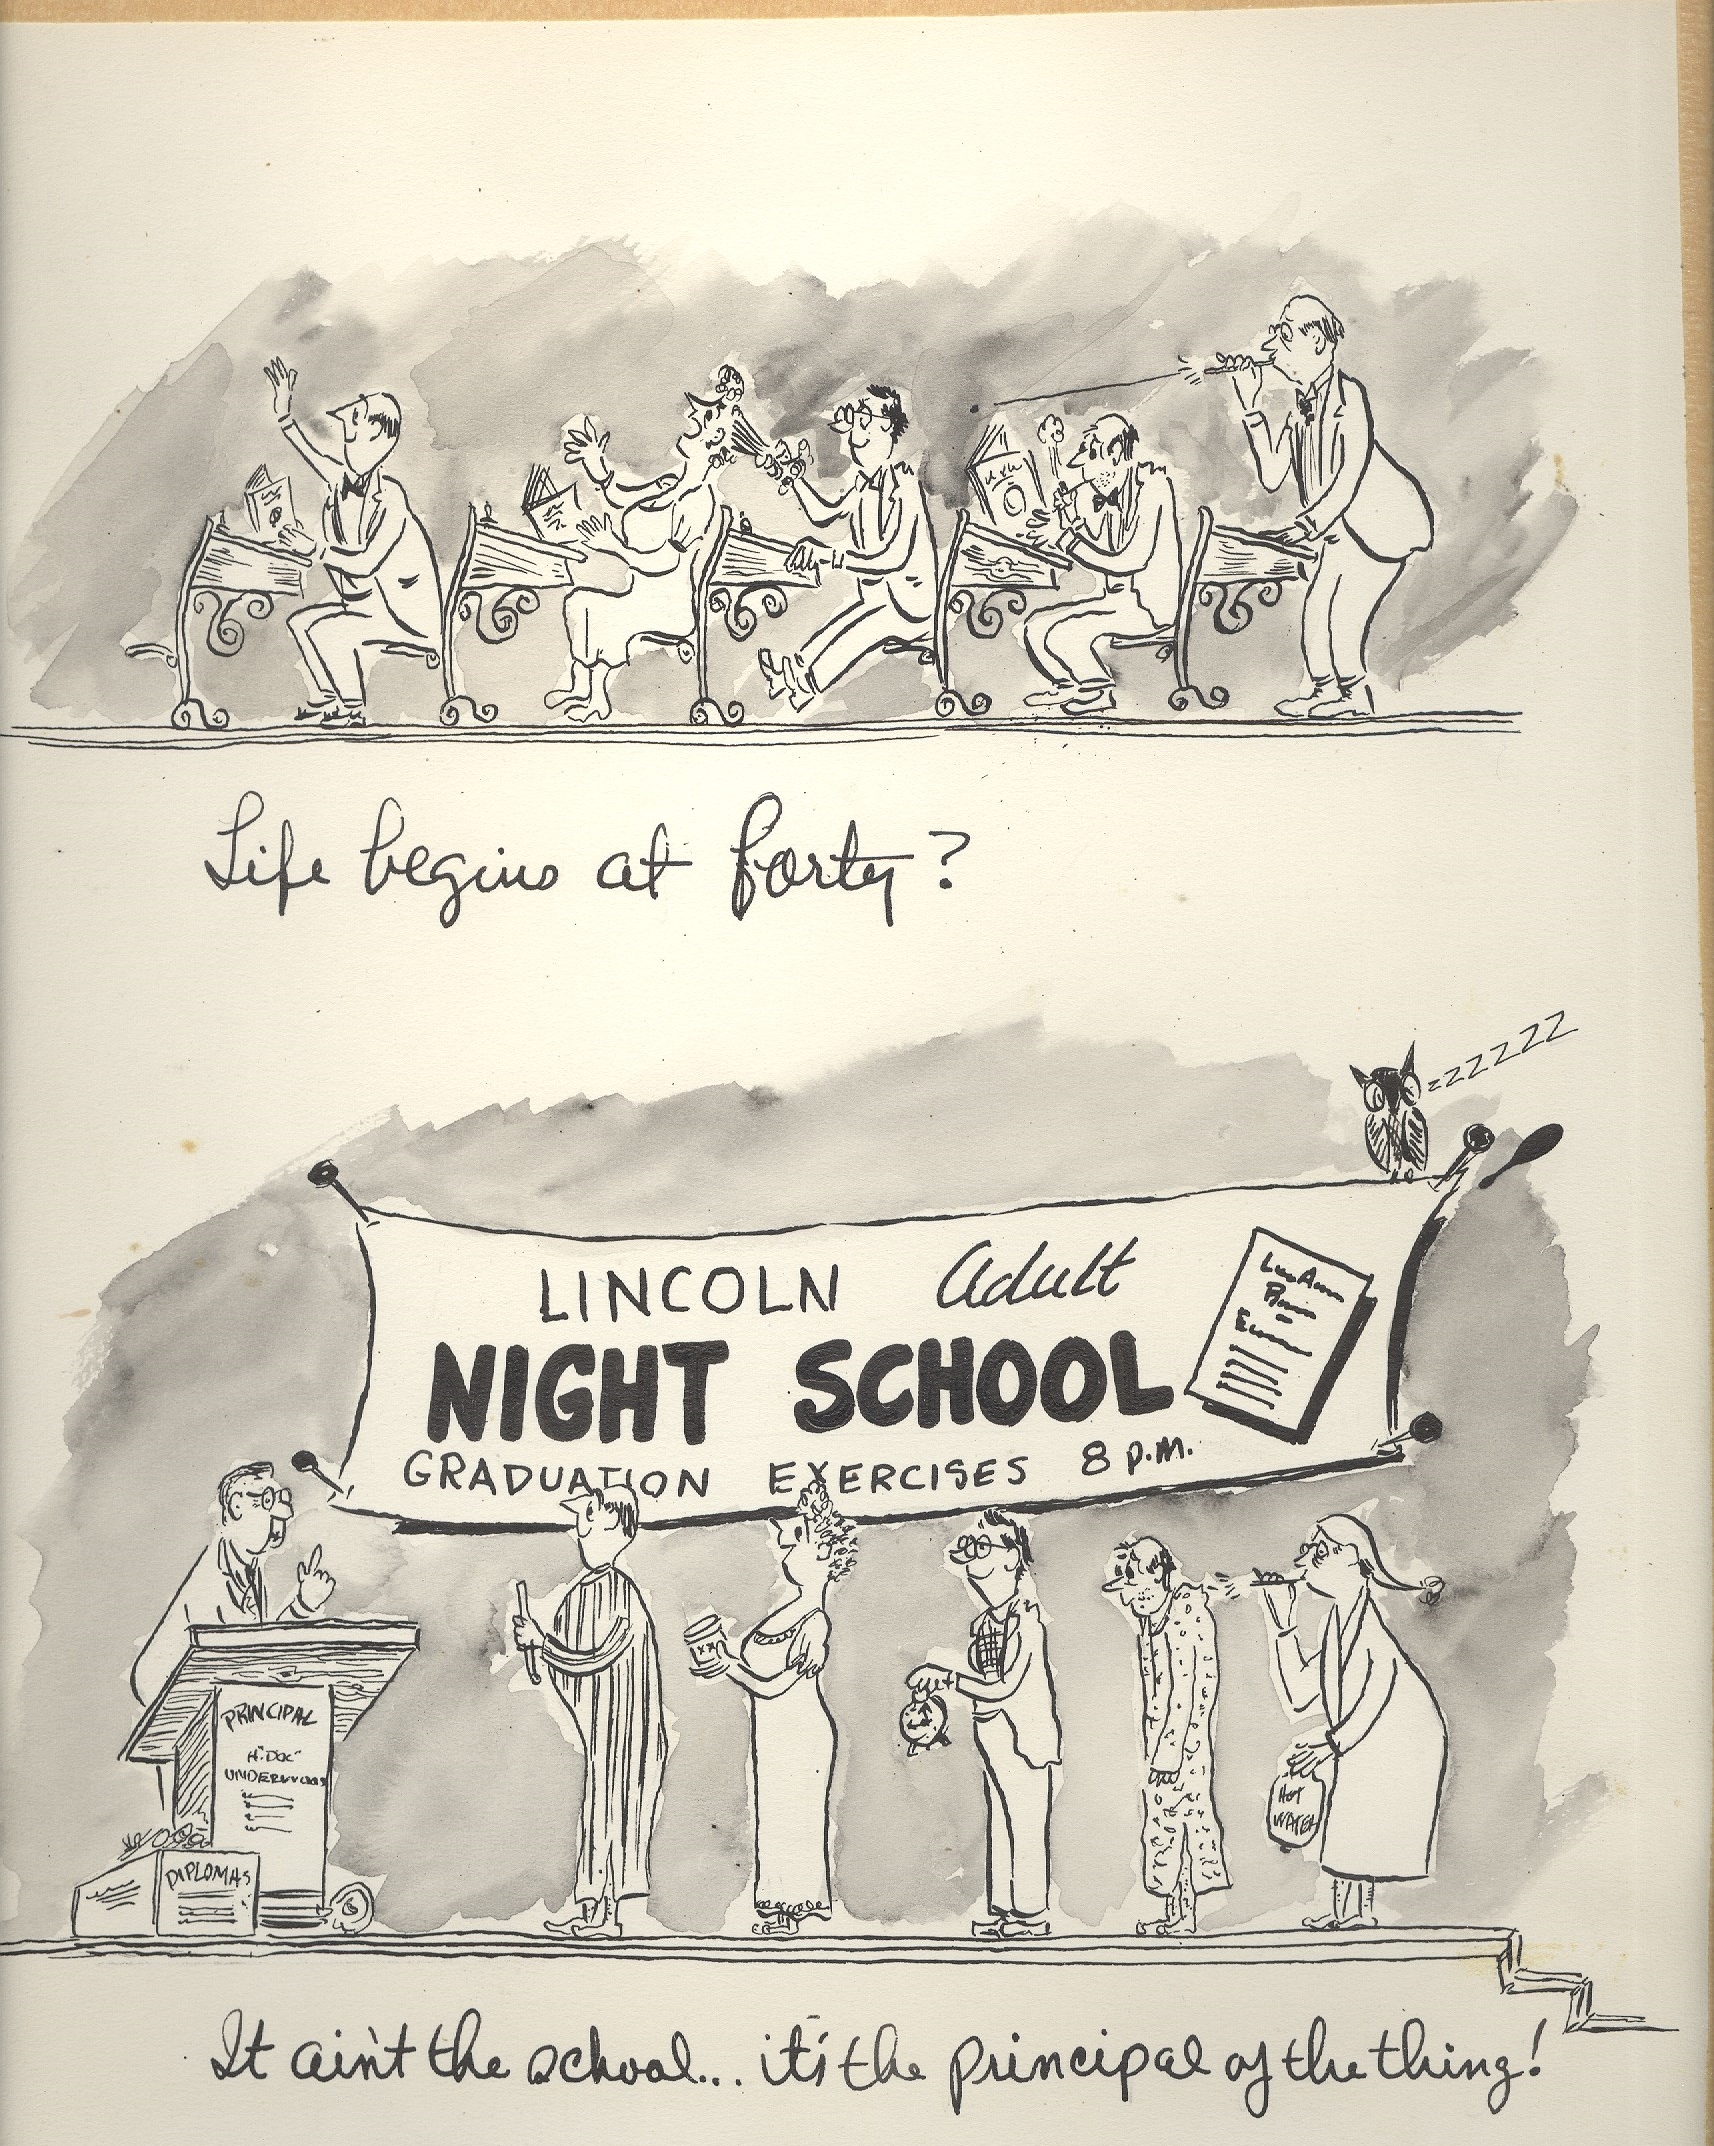 Life begins at forty?
ZZZZZZZ
LINCOLN Adult
NIGHT SCHOOL
GRADUATION EXERCISES 8 P.M.
PRINCIPAL
H. "DOC"
UNDERWOOD
DIPLOMAS
XX
HOT
WATER
It ain't the school... it's the principal of the thing!